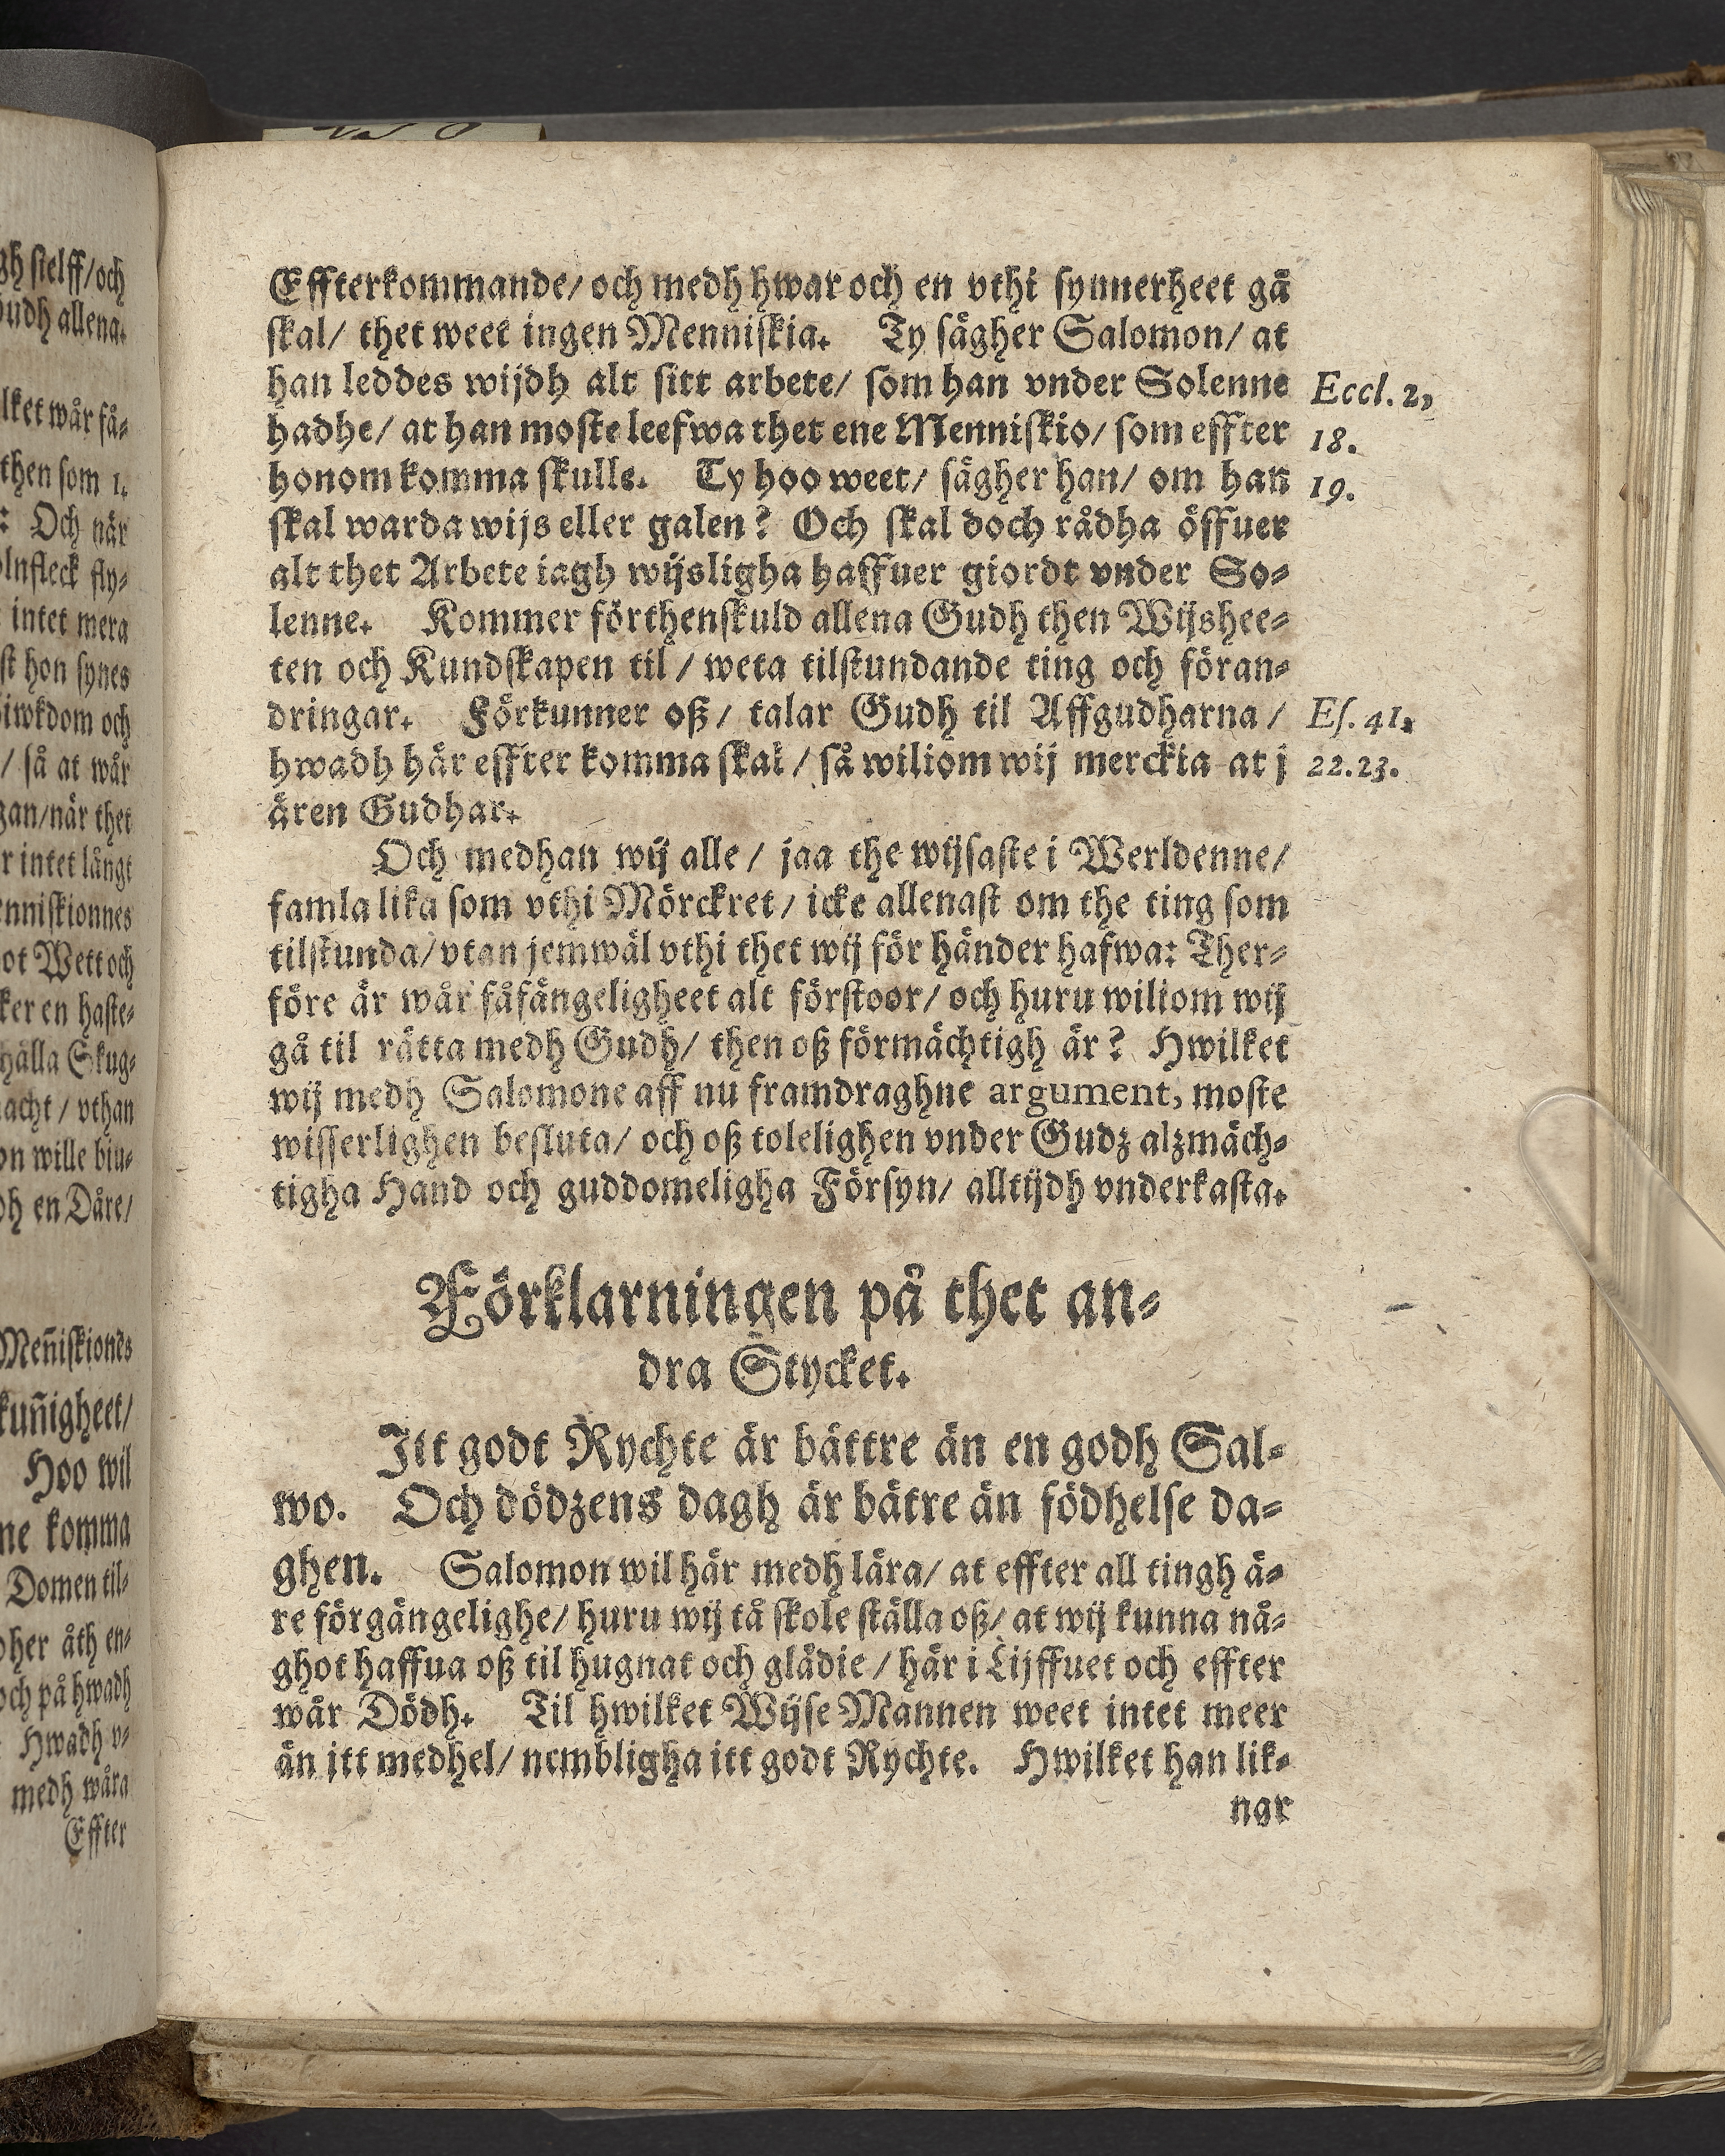 gh sielff/och
Gudh allena.
lket wår få⸗
then som 1.
: Och när
intet mera
st hon synes
iwkdom och
/ så at wår
gan/när thet
r intet långt
enniskionnes
ot Wett och
ker en haste⸗
hålla Skug⸗
acht / vthan
on wille biu⸗
dh en Dåre/
Meñiskiones
kuñigheet/
Hoo wil
ne komma
Domen til⸗
dher åth en⸗
och på hwadh
Hwadh v⸗
medh wåra
Effter
Effterkommande/ och medh hwar och en vthi synnerheet gå
skal/ thet weet ingen Menniskia. Ty sägher Salomon/ at
han leddes wijdh alt sitt arbete/ som han vnder Solenne
hadhe/ at han moste leefwa thet ene Menniskio/ som effter
honom komma skulle. Ty hoo weet/ sägher han/ om han
skal warda wijs eller galen? Och skal doch rådha öffuer
alt thet Arbete iagh wijsligha haffuer giordt vnder So⸗
lenne. Kommer förthenskuld allena Gudh then Wijshee⸗
ten och Kundskapen til / weta tilstundande ting och föran⸗
dringar. Förkunner oß/ talar Gudh til Affgudharna /
hwadh här effter komma skal / så wiliom wij merckia at j
ären Gudhar.
Eccl. 2,
18.
19.
Es. 41.
22.23.
Och medhan wij alle / jaa the wijsaste i Werldenne/
famla lika som vthi Mörckret/ icke allenast om the ting som
tilstunda/ vtan jemwäl vthi thet wij för händer hafwa: Ther⸗
före är wår fåfängeligheet alt förstoor/ och huru wiliom wij
gå til rätta medh Gudh/ then oß förmächtigh är? Hwilket
wij medh Salomone aff nu framdraghne argument, moste
wisserlighen besluta/ och oß tolelighen vnder Gudz alzmäch⸗
tigha Hand och guddomeligha Försyn/ alltijdh vnderkasta.
Förklarningen på thet an⸗
dra Stycket.
Itt godt Rychte är bättre än en godh Sal⸗
wo. Och dödzens dagh är bätre än födhelse da⸗
ghen. Salomon wil här medh lära/ at effter all tingh ä⸗
re förgängelighe/ huru wij tå skole ställa oß/ at wij kunna nå⸗
ghot haffua oß til hugnat och glädie / här i Lijffuet och effter
wår Dödh. Til hwilket Wijse Mannen weet intet meer
än itt medhel/ nembligha itt godt Rychte. Hwilket han lik⸗
nar